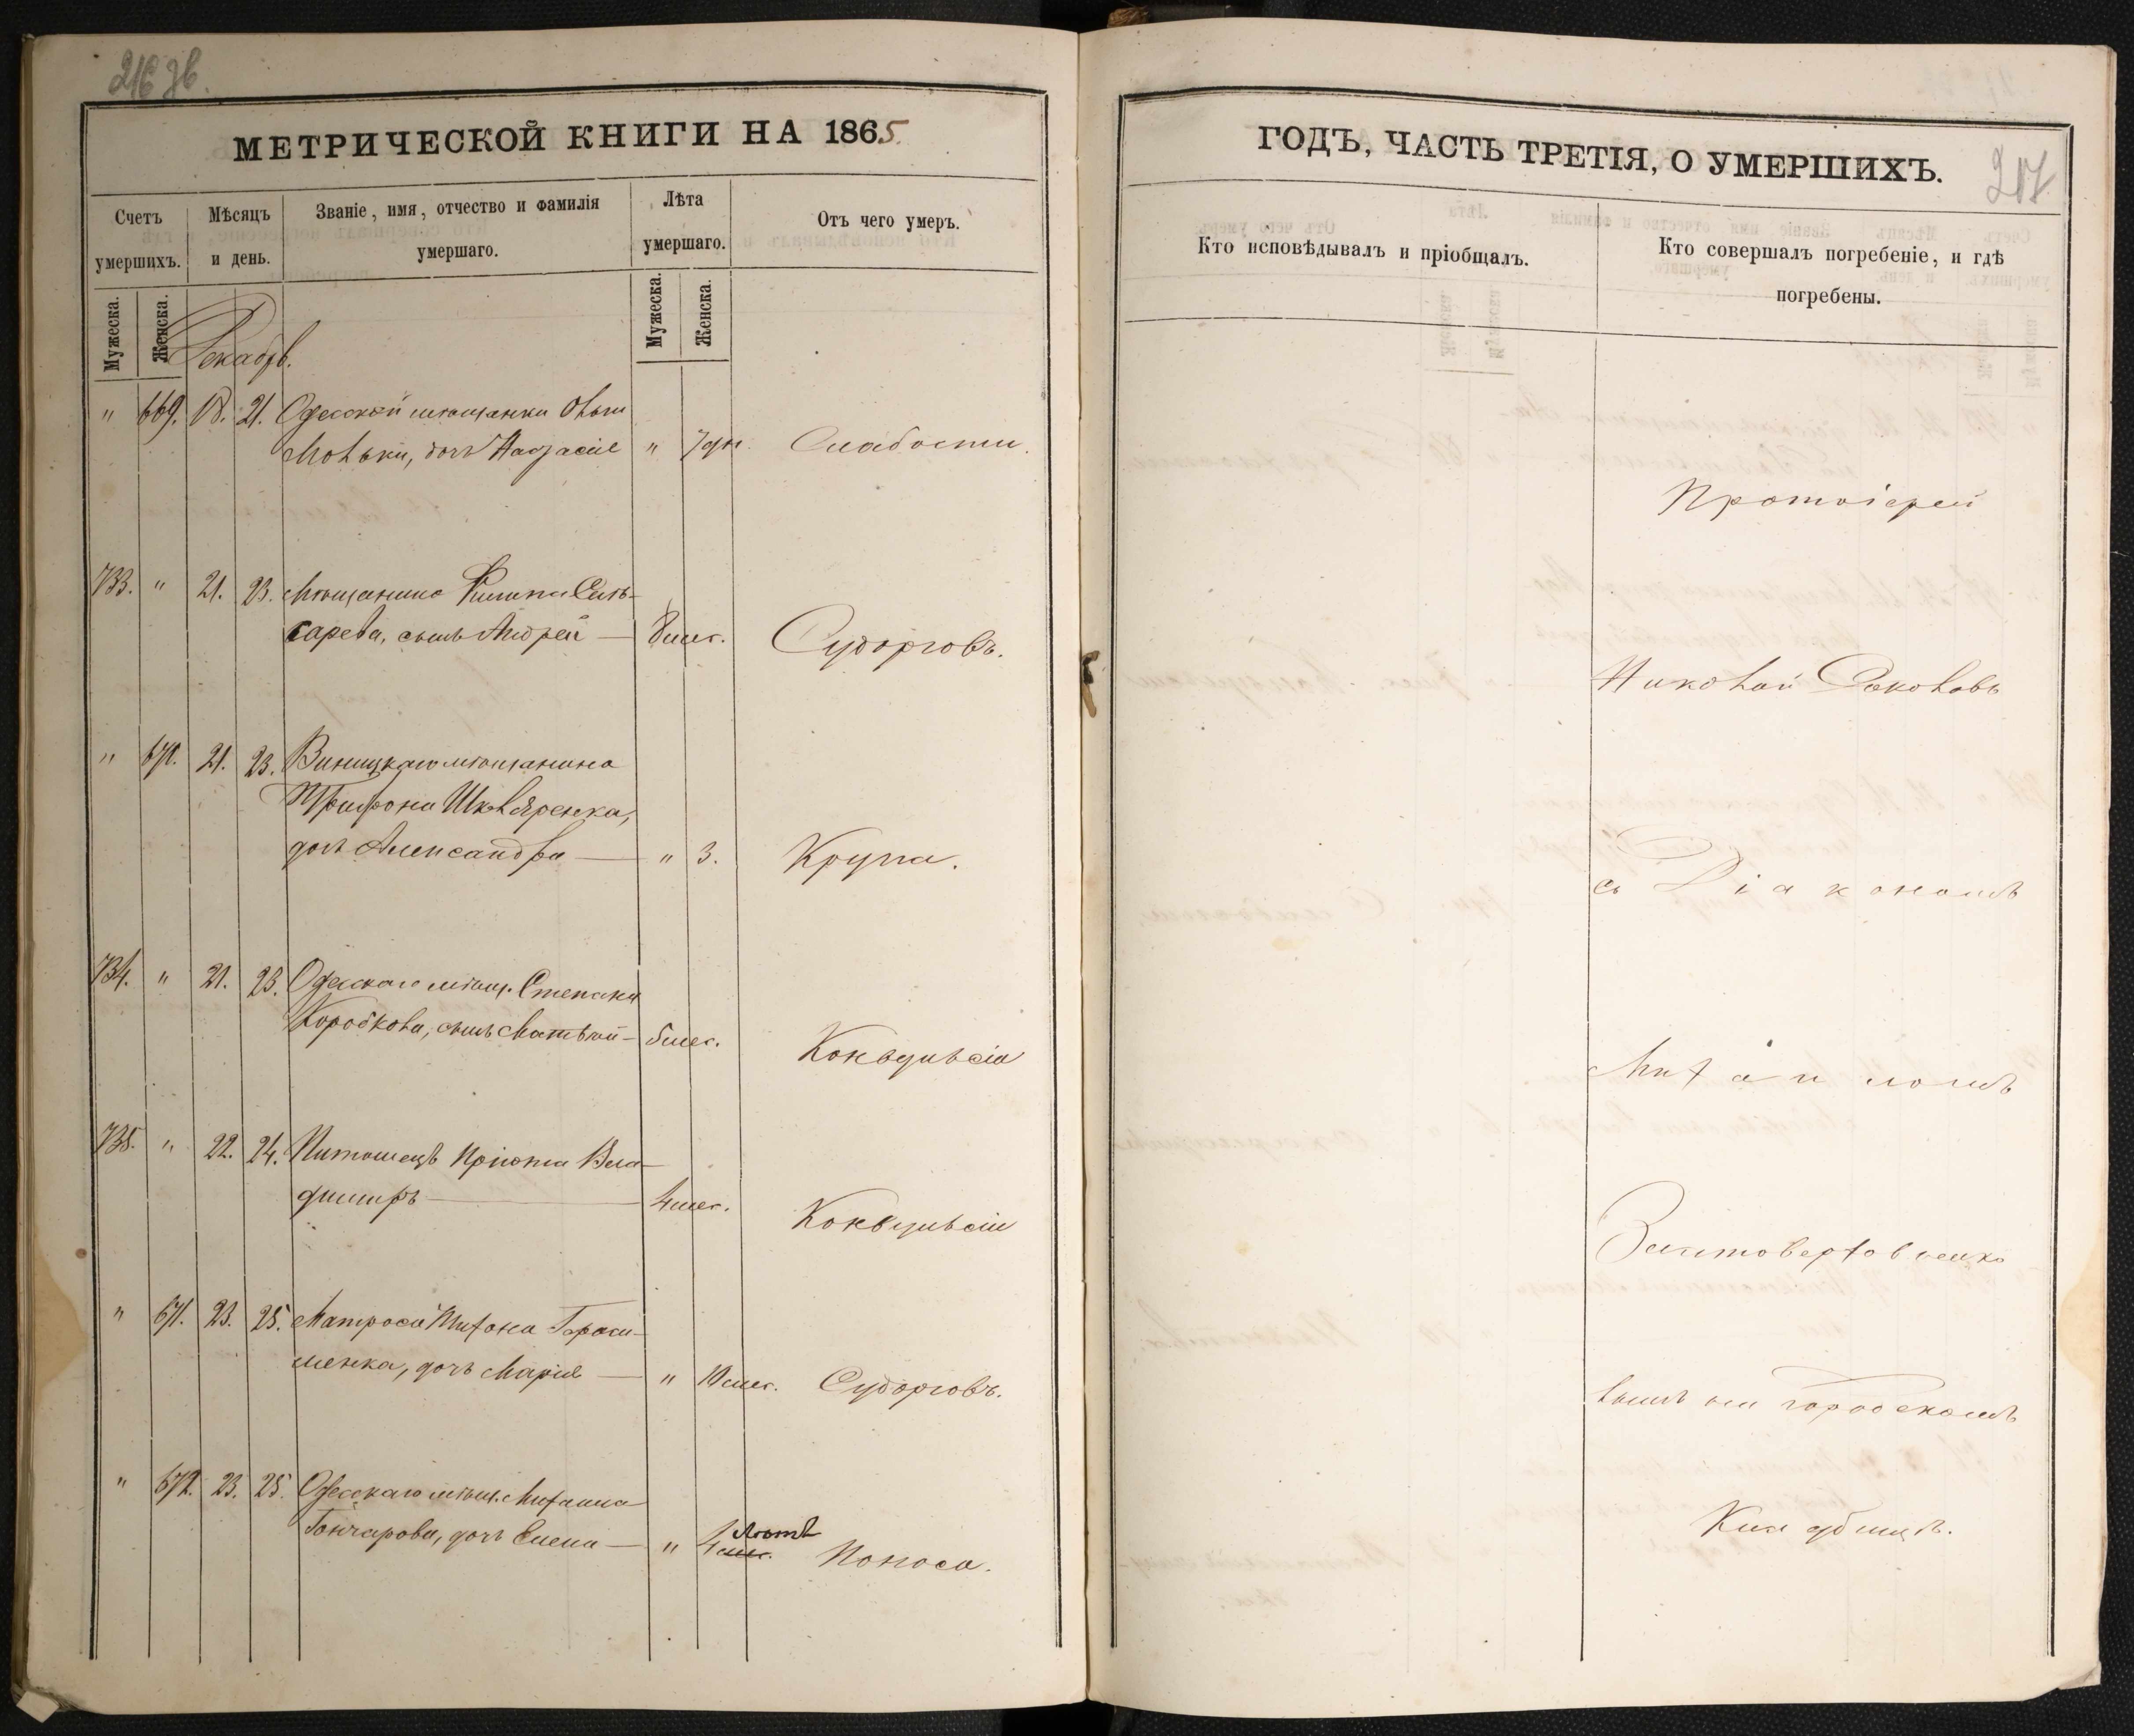 216 зв.
МЕТРИЧЕСКОЙ КНИГИ НА 1865.
Счетъ умершихъ.
Мѣсяцъ и день.
Званіе, имя, отчество и фамилія умершаго.
Лѣта умершаго.
Отъ чего умеръ.
Мужеска.
Женска.
Мужеска.
Женска.
Декабрь.
" 669. 18. 21. Одесской мѣщанки
дочь " 7 дн. Слабости.
733. " 21. 23. Мѣщанина Филипа Сль-
сарева, сынъ Андрей — 8 мес. Судорговъ.
" 670. 21. 23. Виницкаго мѣщанина
Трифона Шкляренка,
дочь Александра — " 3. Крупа.
734. " 21. 23. Одесскаго мѣщ. Степана
Коробкова, сынъ Матвѣй — 5 мес. Конвульсіи
735. " 22. 24. Питомецъ Пріюта Вла-
димиръ — 4 мес. Конвульсіи
" 671. 23. 25. Матроса Тихона Гараси-
менка, дочь Марія — " 10 мес. Судорговъ.
" 672. 23. 25. Одесскаго мѣщ. Михаила
Гончарова, дочь Елена — " 4 мес. лѣтъ Поноса.
ГОДЪ, ЧАСТЬ ТРЕТІЯ, О УМЕРШИХЪ.
217.
Кто исповѣдывалъ и пріобщалъ.
Кто совершалъ погребеніе, и гдѣ
погребены.
Протоіерей
Николай Соколовъ
съ Діакономъ
Михаиломъ
Златоверховни­ко
вымъ на городскомъ
Кладбищѣ.